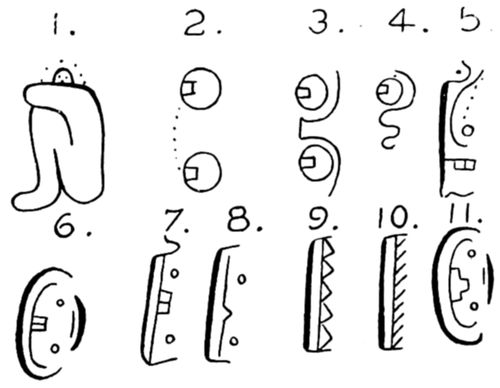 1. 2. 3. 4. 5
6. 7. 8. 9. 10. 11.